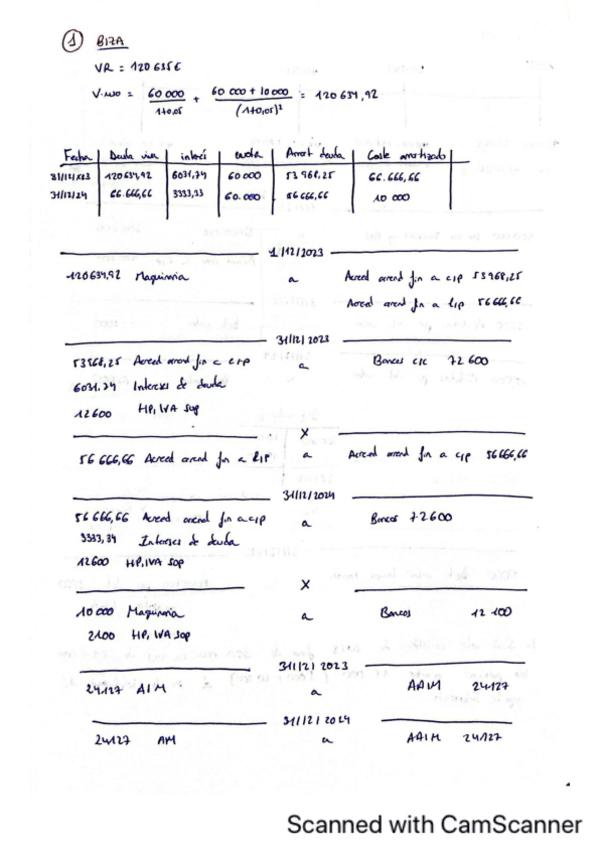 1 BIZA
VR = 120 635€
V. = 60 000 / 1+0,05 + 60 000 + 10 000 / (1+0,05)² = 120 634,92
Fecha Deuda viva interés cuota Amort deuda Coste amortizado
31/12/x23 120634,92 6031,74 60000 53968,25 66.666,66
31/12/24 66.666,66 3333,33 60.000 56666,66 10 000
1/12/2023
120634,92 Maquinaria a Acreed arrend fin a c/p 53968,25
Acreed arrend fin a l/p 56666,66
31/12/2023
53968,25 Acreed arrend fin a c/p a Bancos c/c 72600
6031,74 Intereses de deuda
12600 HP, IVA Sop
X
56 666,66 Acreed arrend fin a l/p a Acreed arrend fin a c/p 56666,66
31/12/2024
56 666,66 Acreed arrend fin a c/p a Bancos 72600
3333,34 Intereses de deuda
12600 HP, IVA Sop
X
10 000 Maquinaria a Bancos 12 100
2100 HP, IVA Sop
31/12/2023
24127 AIM a AAIM 24127
31/12/2024
24127 AM a AAIM 24127
Scanned with CamScanner